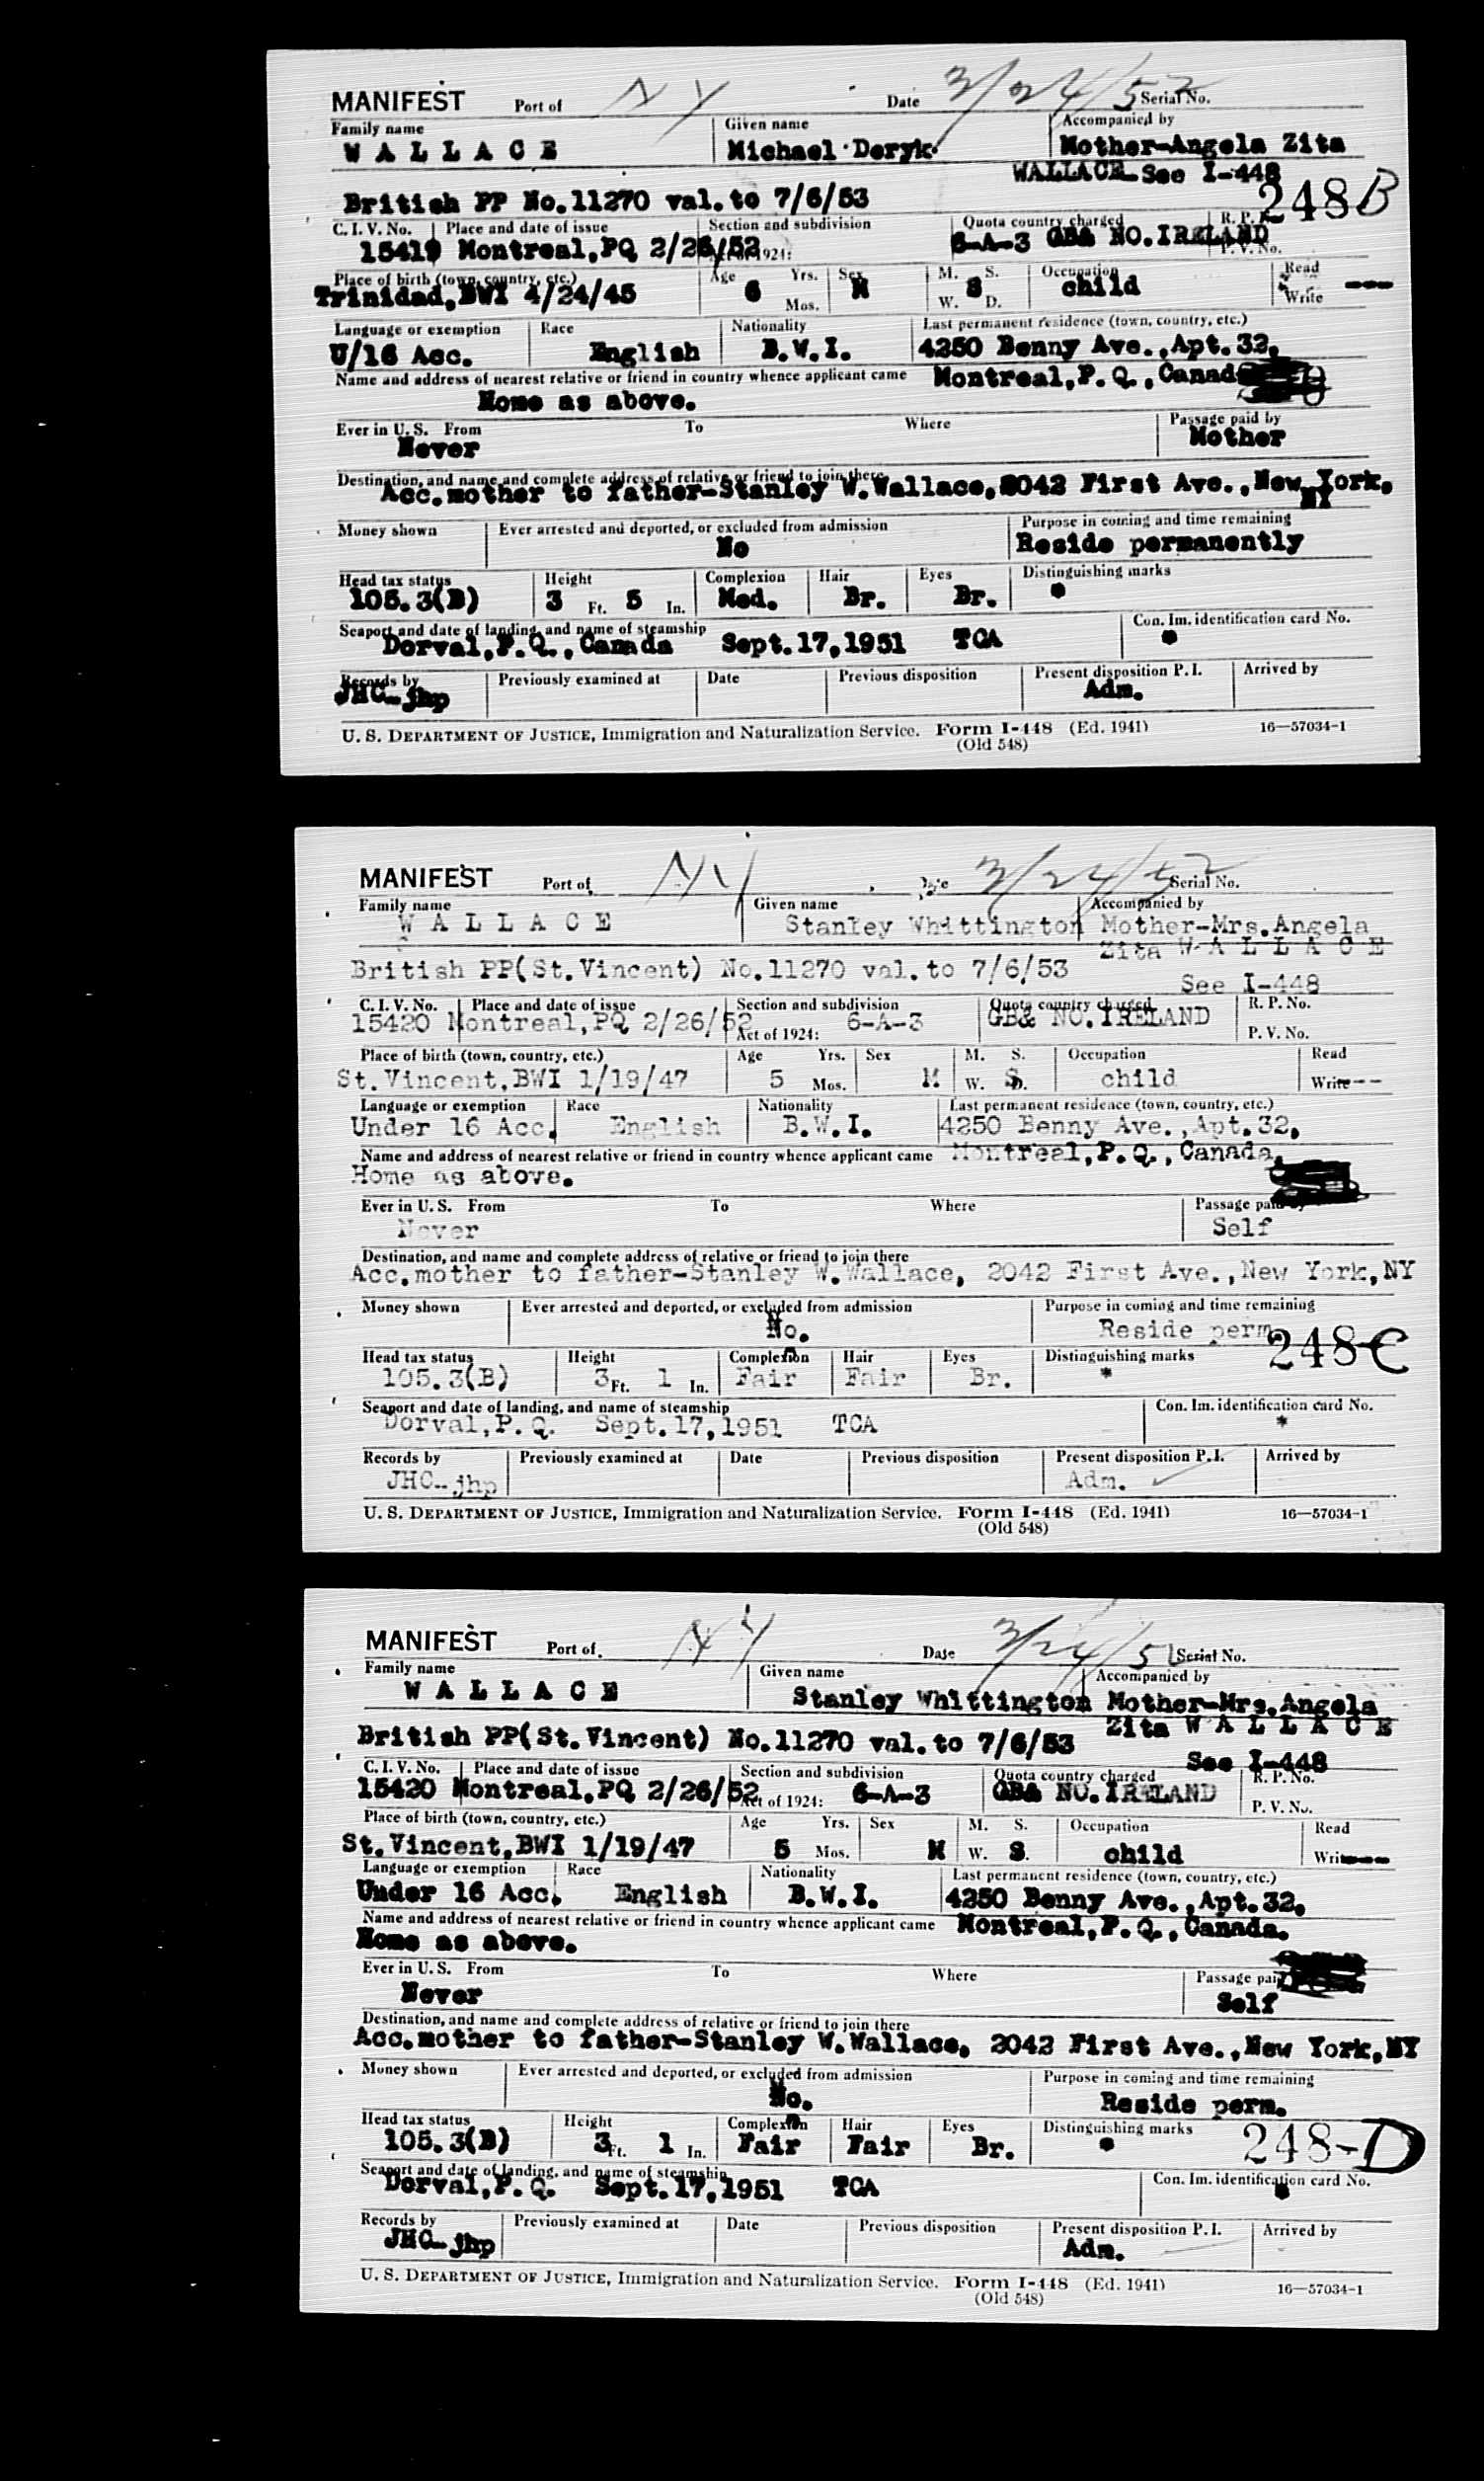 MANIFEST Port of NY Date 3/24/52 Serial No.
Family name Given name Accompanied by
W A L L A C E Michael Deryk Mother-Angela Zita
WALLACE See I-448
British PP No.11270 val.to 7/6/53 248B
C. I. V. No. Place and date of issue Section and subdivision Quota country charged R. P.
15419 Montreal,PQ 2/26/52 1924: 6-A-3 GB& NO.IRELAND P. V. No.
Place of birth (town, country, etc.) Age Yrs. Sex M. S. Occupation Read
Trinidad,BWI 4/24/45 6 Mos. M W. S D. child Write ---
Language or exemption Race Nationality Last permanent residence (town, country, etc.)
U/16 Acc. English B.W.I. 4250 Benny Ave.,Apt.32,
Name and address of nearest relative or friend in country whence applicant came Montreal,P.Q.,Canada
Home as above.
Ever in U. S. From To Where Passage paid by
Never Mother
Destination, and name and complete address of relative or friend to join there
Acc.mother to father-Stanley W.Wallace,2042 First Ave.,New York,
NY
Money shown Ever arrested and deported, or excluded from admission Purpose in coming and time remaining
No Reside permanently
Head tax status Height Complexion Hair Eyes Distinguishing marks
105.3(B) 3 Ft. 5 In. Med. Br. Br. *
Seaport and date of landing, and name of steamship Con. Im. identification card No.
Dorval,P.Q.,Canada Sept.17,1951 TCA *
Records by Previously examined at Date Previous disposition Present disposition P. I. Arrived by
JHC-jhp Adm.
U. S. DEPARTMENT OF JUSTICE, Immigration and Naturalization Service. Form I-448 (Ed. 1941) 16—57034-1
(Old 548)
MANIFEST Port of NY Date 3/24/52 Serial No.
Family name Given name Accompanied by
W A L L A C E Stanley Whittington Mother-Mrs.Angela
Zita W A L L A C E
British PP(St.Vincent) No.11270 val.to 7/6/53
See I-448
C. I. V. No. Place and date of issue Section and subdivision Quota country charged R. P. No.
15420 Montreal,PQ 2/26/52 Act of 1924: 6-A-3 GB& NO.IRELAND P. V. No.
Place of birth (town, country, etc.) Age Yrs. Sex M. S. Occupation Read
St.Vincent,BWI 1/19/47 5 Mos. M W. S D. child Write---
Language or exemption Race Nationality Last permanent residence (town, country, etc.)
Under 16 Acc. English B.W.I. 4250 Benny Ave.,Apt.32,
Name and address of nearest relative or friend in country whence applicant came Montreal,P.Q.,Canada.
Home as above.
Ever in U. S. From To Where Passage paid by
Never Self
Destination, and name and complete address of relative or friend to join there
Acc.mother to father-Stanley W.Wallace, 2042 First Ave.,New York,NY
Money shown Ever arrested and deported, or excluded from admission Purpose in coming and time remaining
No. Reside perm. 248-C
Head tax status Height Complexion Hair Eyes Distinguishing marks
105.3(B) 3 Ft. 1 In. Fair Fair Br. *
Seaport and date of landing, and name of steamship Con. Im. identification card No.
Dorval,P.Q. Sept.17,1951 TCA *
Records by Previously examined at Date Previous disposition Present disposition P. I. Arrived by
JHC-jhp Adm.
U. S. DEPARTMENT OF JUSTICE, Immigration and Naturalization Service. Form I-448 (Ed. 1941) 16—57034-1
(Old 548)
MANIFEST Port of NY Date 3/24/52 Serial No.
Family name Given name Accompanied by
W A L L A C E Stanley Whittington Mother-Mrs.Angela
Zita W A L L A C E
British PP(St.Vincent) No.11270 val.to 7/6/53
See I-448
C. I. V. No. Place and date of issue Section and subdivision Quota country charged R. P. No.
15420 Montreal,PQ 2/26/52 Act of 1924: 6-A-3 GB& NO.IRELAND P. V. No.
Place of birth (town, country, etc.) Age Yrs. Sex M. S. Occupation Read
St.Vincent,BWI 1/19/47 5 Mos. M W. S. child Write---
Language or exemption Race Nationality Last permanent residence (town, country, etc.)
Under 16 Acc. English B.W.I. 4250 Benny Ave.,Apt.32,
Name and address of nearest relative or friend in country whence applicant came Montreal,P.Q.,Canada.
Home as above.
Ever in U. S. From To Where Passage paid
Never Self
Destination, and name and complete address of relative or friend to join there
Acc.mother to father-Stanley W.Wallace, 2042 First Ave.,New York,NY
Money shown Ever arrested and deported, or excluded from admission Purpose in coming and time remaining
No. Reside perm.
Head tax status Height Complexion Hair Eyes Distinguishing marks 248-D
105.3(B) 3 Ft. 1 In. Fair Fair Br. *
Seaport and date of landing, and name of steamship Con. Im. identification card No.
Dorval,P.Q. Sept.17,1951 TCA *
Records by Previously examined at Date Previous disposition Present disposition P. I. Arrived by
JHC-jhp Adm.
U. S. DEPARTMENT OF JUSTICE, Immigration and Naturalization Service. Form I-448 (Ed. 1941) 16—57034-1
(Old 548)